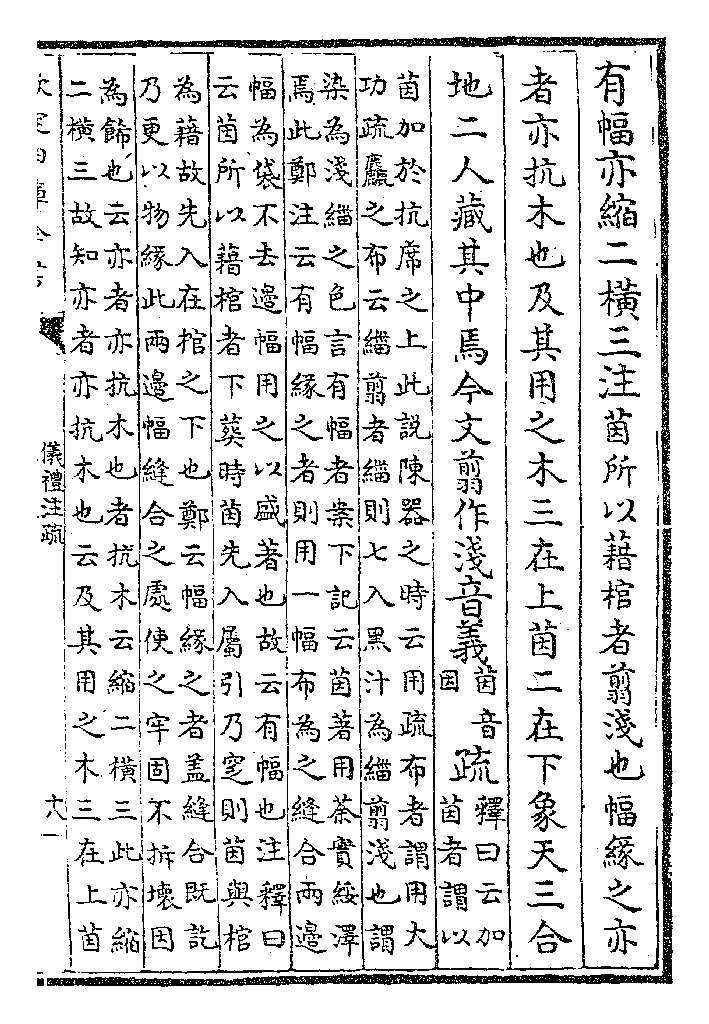 有幅亦縮二橫三注茵所以藉棺者翦淺也幅緣之亦
者亦抗木也及其用之木三在上茵二在下象天三合
地二人藏其中焉今文翦作淺音義茵音因疏釋曰云加茵者謂以
茵加於抗席之上此說陳器之時云用疏布者謂用大
功疏麤之布云緇翦者緇則七入黑汁為緇翦淺也謂
染為淺緇之色言有幅者案下記云茵著用荼實綏澤
焉此鄭注云有幅緣之者則用一幅布為之縫合兩邉
幅為袋不去邉幅用之以盛著也故云有幅也注釋曰
云茵所以藉棺者下葬時茵先入屬引乃窆則茵與棺
為藉故先入在棺之下也鄭云幅緣之者盖縫合既訖
乃更以物緣此兩邉幅縫合之處使之牢固不拆壞因
為飾也云亦者亦抗木也者抗木云縮二橫三此亦縮
二橫三故知亦者亦抗木也云及其用之木三在上茵
欽定四庫全書
儀禮注疏
十八